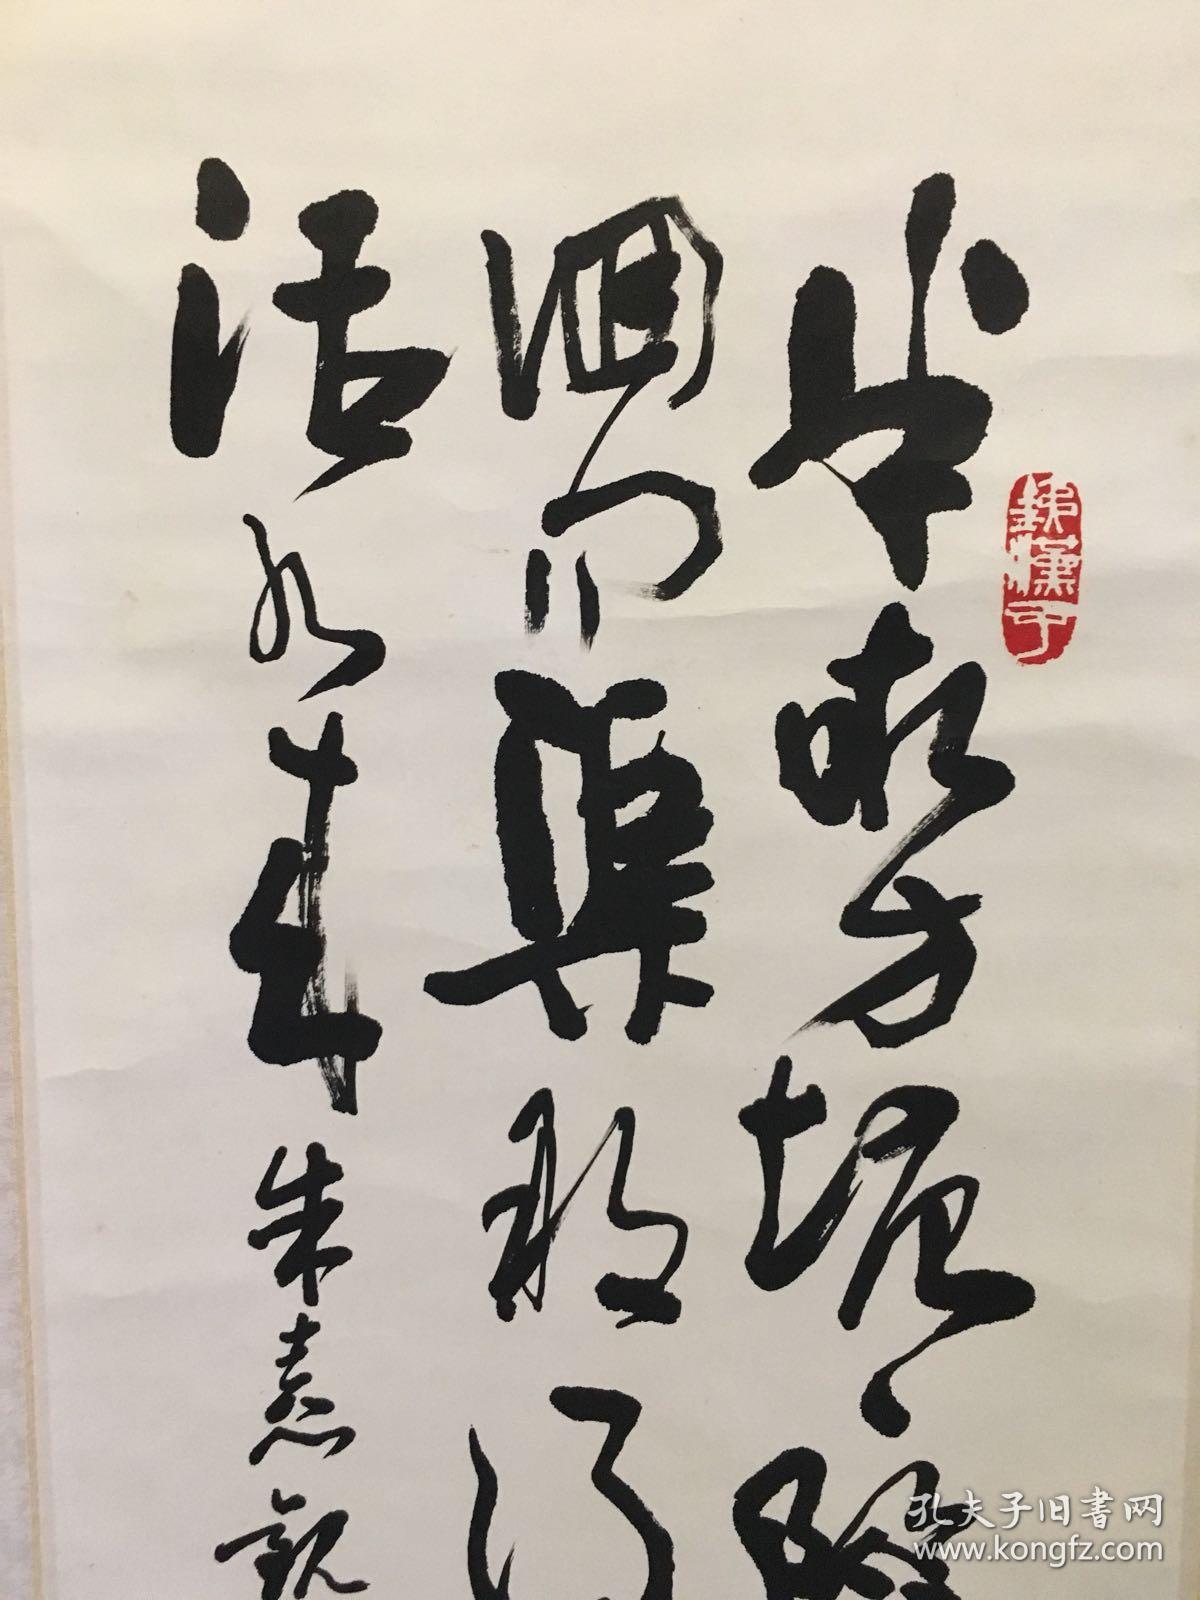 半畝方塘一鑑
徊問渠那得
活水來朱熹觀
孔夫子旧书网
www.kongfz.com